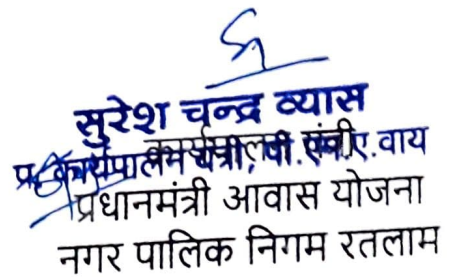 सुरेश चन्द्र व्यास
प्र. कार्यपालन यंत्री, पी.एम.ए.वाय
प्रधानमंत्री आवास योजना
नगर पालिक निगम रतलाम